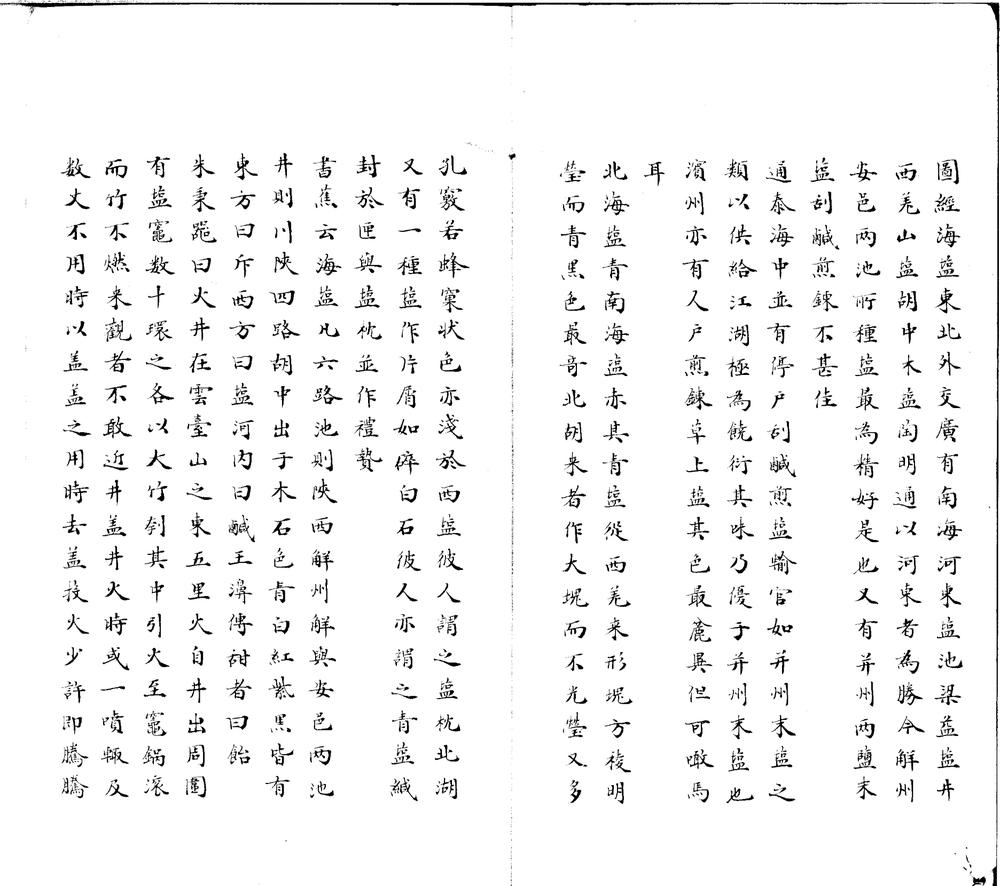 圖經海塩東北外交廣有南海河東塩池梁益塩井
西羌山塩胡中木塩陶明通以河東者為勝今解州
安邑兩池所種塩最為精好是也又有并州兩鹽末
塩刮鹹煎鍊不甚佳
通泰海中並有停户刮鹹煎塩輸官如并州末塩之
類以供給江湖極為饒衍其味乃優于并州末塩也
濱州亦有人户煎鍊草土塩其色最麄異但可噉馬
耳
北海塩青南海塩赤其青塩從西羌来形塊方稜明
瑩而青黑色最奇北胡来者作大塊而不光瑩又多
孔竅若蜂窠状色亦淺於西塩彼人謂之塩枕北湖
又有一種塩作片屑如碎白石彼人亦謂之青塩緘
封於匣與塩枕並作禮贄
書蕉云海塩凡六路池則陝西解州解與安邑兩池
井則川陝四路胡中出于木石色青白紅紫黑皆有
東方曰斥西方曰塩河内曰鹹王濞傳甜者曰飴
朱秉跪曰火井在雲臺山之東五里火自井出周圍
有塩竈数十環之各以大竹刳其中引火至竈鍋滚
而竹不燃来觀者不敢近井盖井火時或一噴輙及
数丈不用時以盖盖之用時去盖投火少許即騰騰